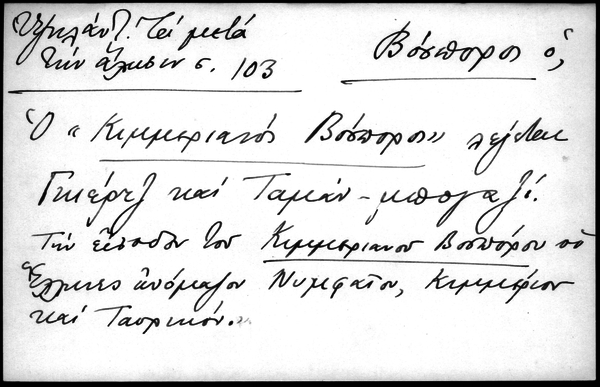 Ὑψηλάντ. Τὰ μετὰ
τὴν ἅλωσιν σ. 103
Βόσπορος ὁ,
Ὁ «Κιμμεριανὸς Βόσπορος» λέγεται
Γκιέρτζ καὶ Ταμὰν-μπογαζί.
Τὴν εἴσοδον τοῦ Κιμμεριανοῦ Βοσπόρου οἱ
Ἕλληνες ὠνόμαζον Νυμφαῖον, Κιμμέριον
καὶ Ταυρικόν.